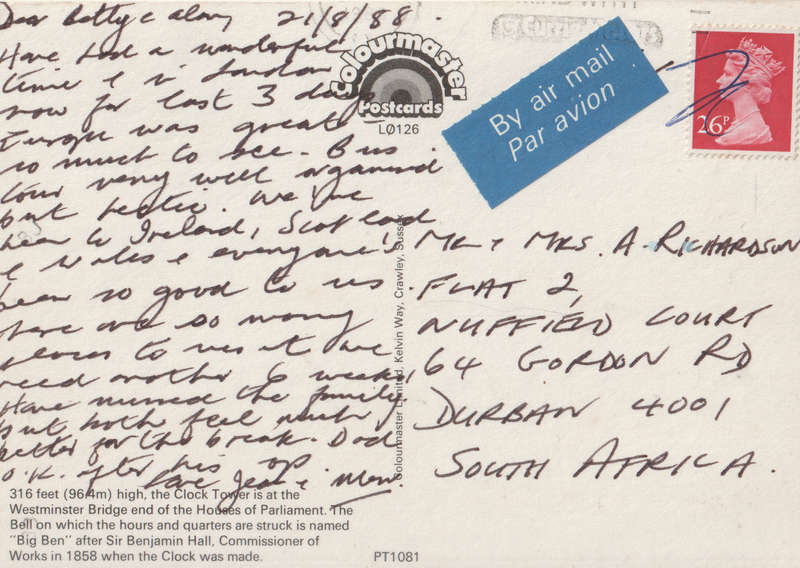 Dear Betty & Alan, 21/8/88.
Have had a wonderful
time & in London
now for last 3 days
Europe was great
so much to see. Bus
tour very well organised
but hectic. We've
been to Ireland, Scotland
& Wales & everyone's
been so good to us.
There are so many
places to visit we
need another 6 weeks,
Have missed the family
but both feel much
better for the break. Dad
O.K. after his op
Love Jean &
Colourmaster
Postcards
LO126
By air mail
Par avion
26P
MR & MRS. A. RICHARDSON
FLAT 2,
NUFFIELD COURT
64 GORDON RD
DURBAN 4001
SOUTH AFRICA.
Colourmaster Limited, Kelvin Way, Crawley, Sussex
316 feet (96.4m) high, the Clock Tower is at the
Westminster Bridge end of the Houses of Parliament. The
Bell on which the hours and quarters are struck is named
"Big Ben" after Sir Benjamin Hall, Commissioner of
Works in 1858 when the Clock was made.
PT1081